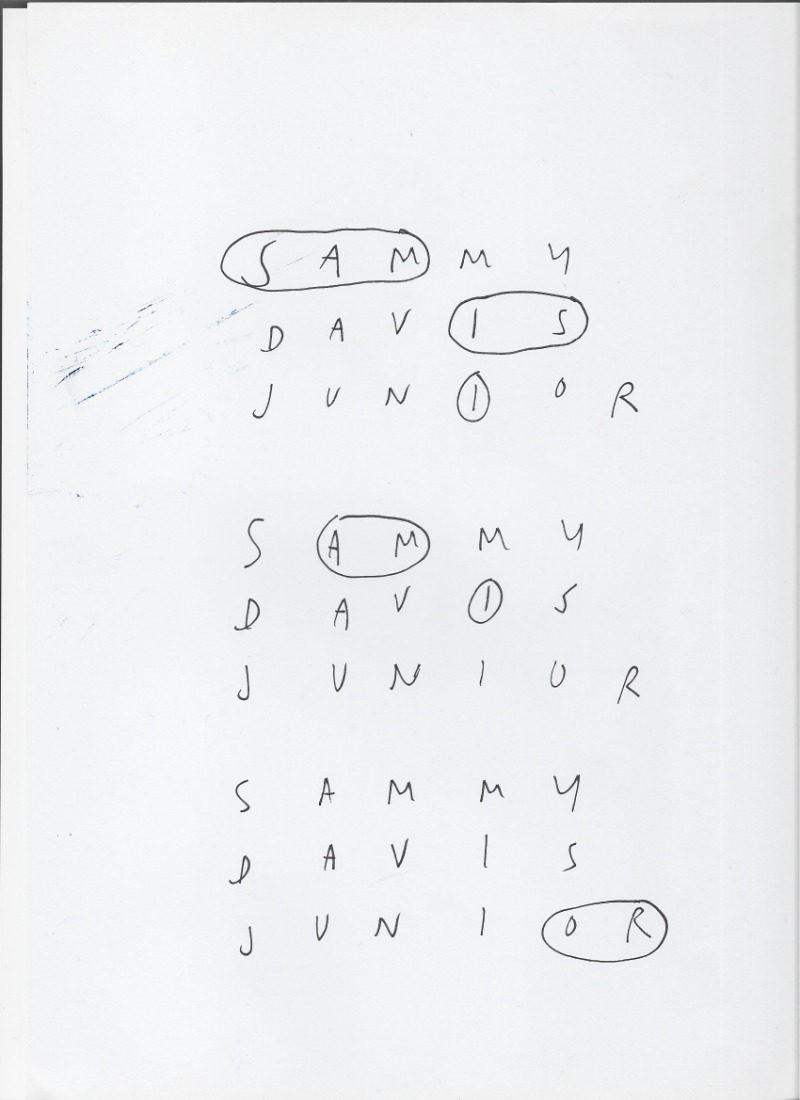 S A M M Y
D A V I S
J U N I O R
S A M M Y
D A V I S
J U N I O R
S A M M Y
D A V I S
J U N I O R